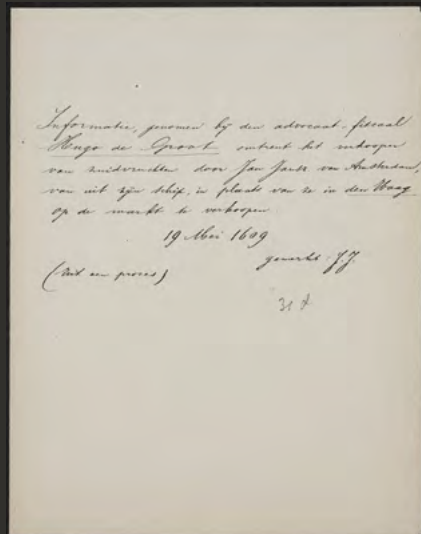 Informatie, genomen bij den advocaat-fiscaal
Hugo de Groot omtrent het inkoopen
van zuidvruchten door Jan Jansz van Amsterdam,
van uit zijn schip, in plaats van ze in den Haag
op de markt te verkoopen
19 Mei 1609
(Uit een proces)
gemerkt: J.J.
31